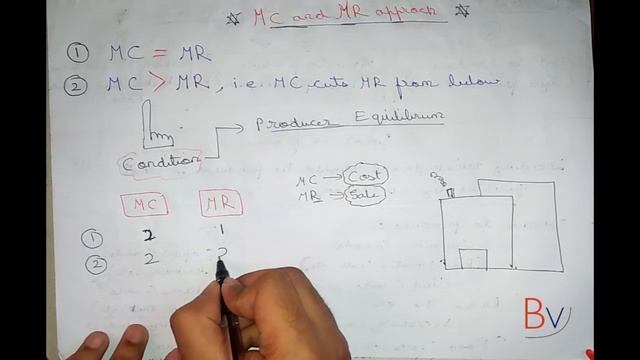 ☆ MC and MR approch ☆
① MC = MR
② MC > MR, i.e. MC cuts MR from below
Condition → Producer Equilibrium
MC → Cost
MR → Sale
MC MR
① 2 1
② 2
BV